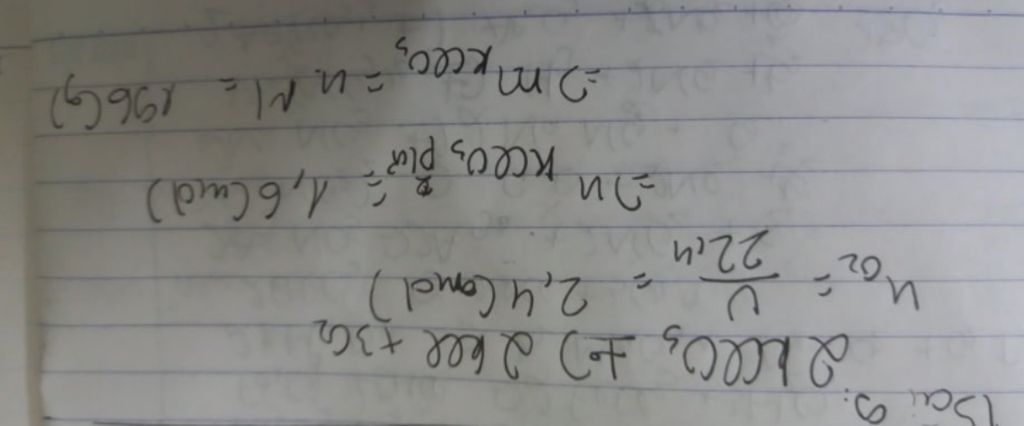 Bài 9:
2KClO₃ t° → 2KCl + 3O₂
nO₂ = V / 22,4 = 2,4 (mol)
=> n KClO₃ = 1,6 (mol)
=> m KClO₃ = n.M = 196 (g)